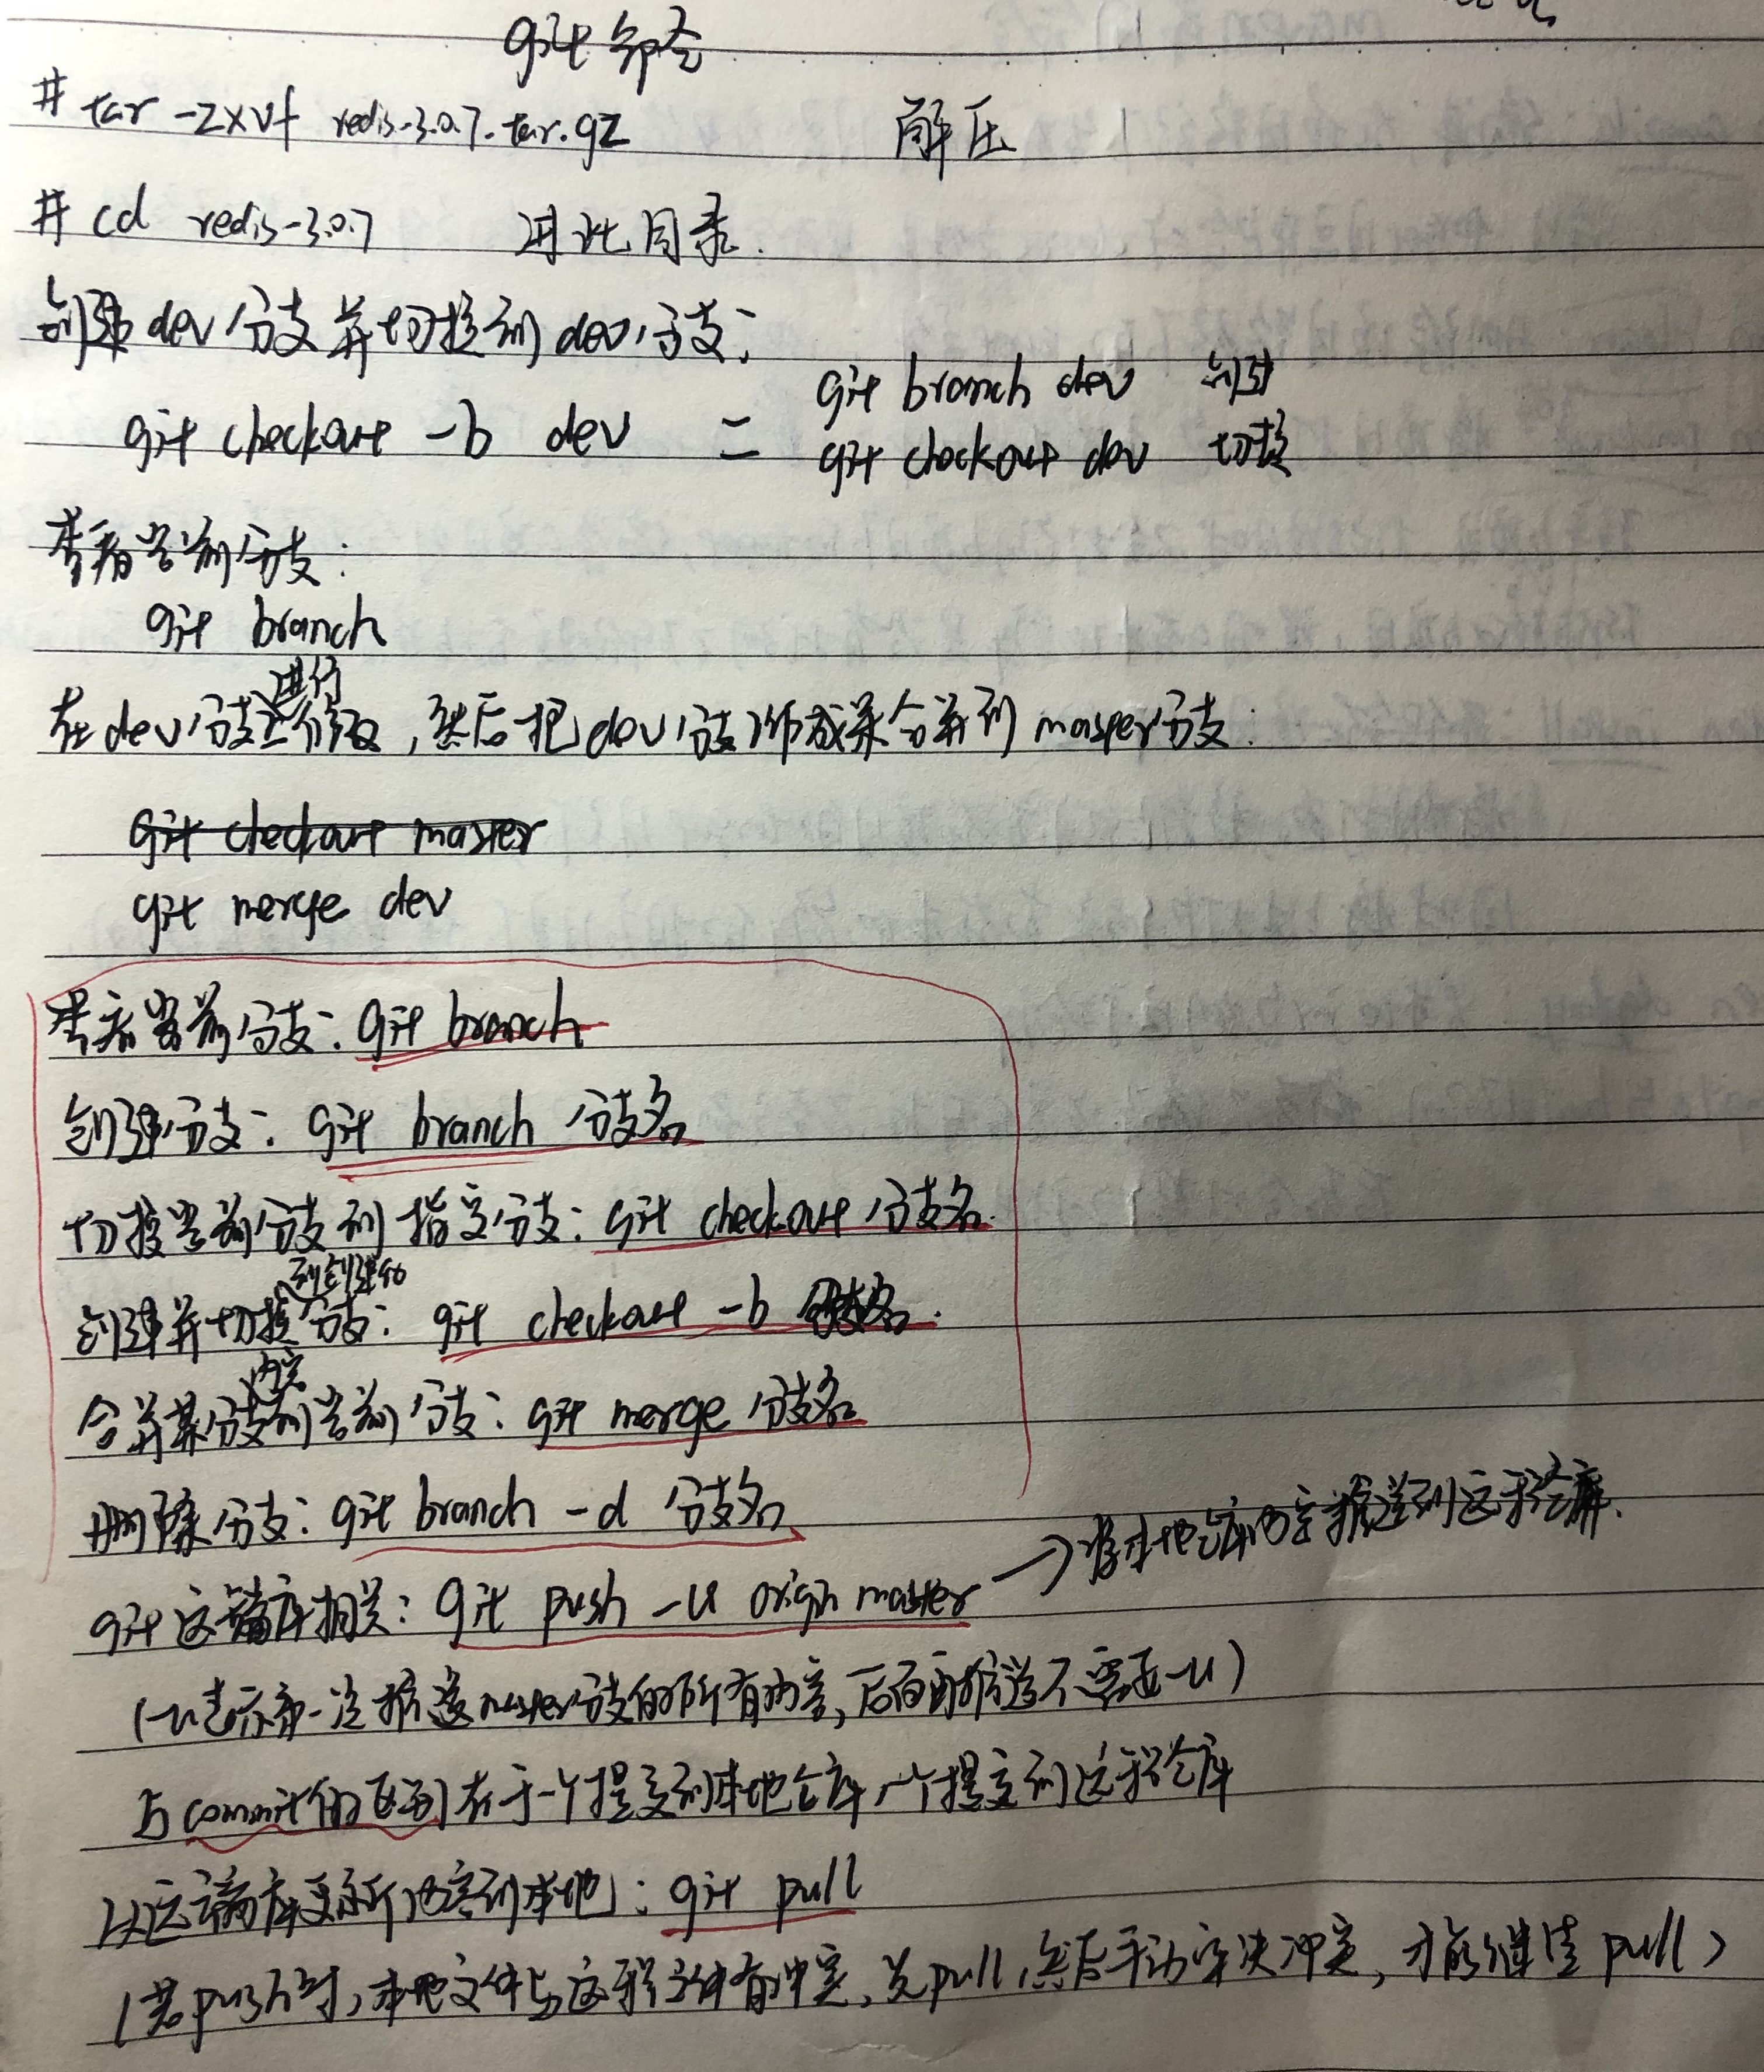 git 命令
# tar -zxvf redis-3.0.7.tar.gz 解压
# cd redis-3.0.7 进此目录.
创建dev分支并切换到dev分支:
git checkout -b dev = git branch dev 创建
git checkout dev 切换
查看当前分支:
git branch
在dev分支上进行修改,然后把dev分支的成果合并到master分支:
git checkout master
git merge dev
查看当前分支: git branch
创建分支: git branch 分支名
切换当前分支到指定分支: git checkout 分支名.
创建并切换到创建的分支: git checkout -b 分支名.
合并某分支内容到当前分支: git merge 分支名
删除分支: git branch -d 分支名
git 远端库相关: git push -u origin master → 将本地仓库内容推送到远程仓库.
(-u表示第一次推送master分支的所有内容,后面再推送不需要-u)
与commit的区别在于一个提交到本地仓库,一个提交到远程仓库
从远端库更新内容到本地: git pull
(若push时,本地文件与远程文件有冲突,先pull,然后手动解决冲突,才能继续pull)